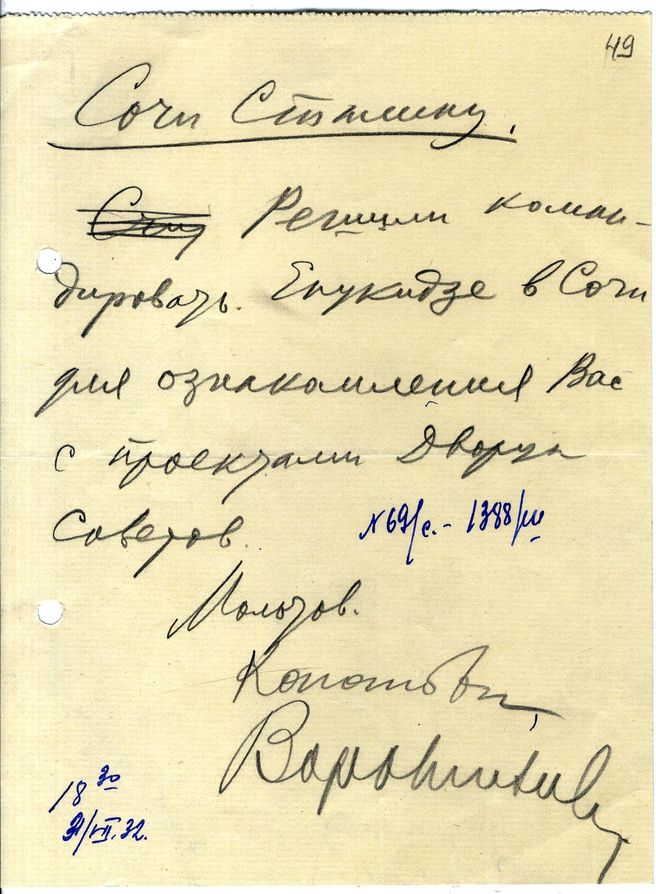 49
Сочи Сталину.
Решили коман-
дировать Енукидзе в Сочи
для ознакомления Вас
с проектами Дворца
Советов.
№69/с.- 1388/ш
Молотов.
Каганович,
Ворошилов
18 30
31/VII.32.